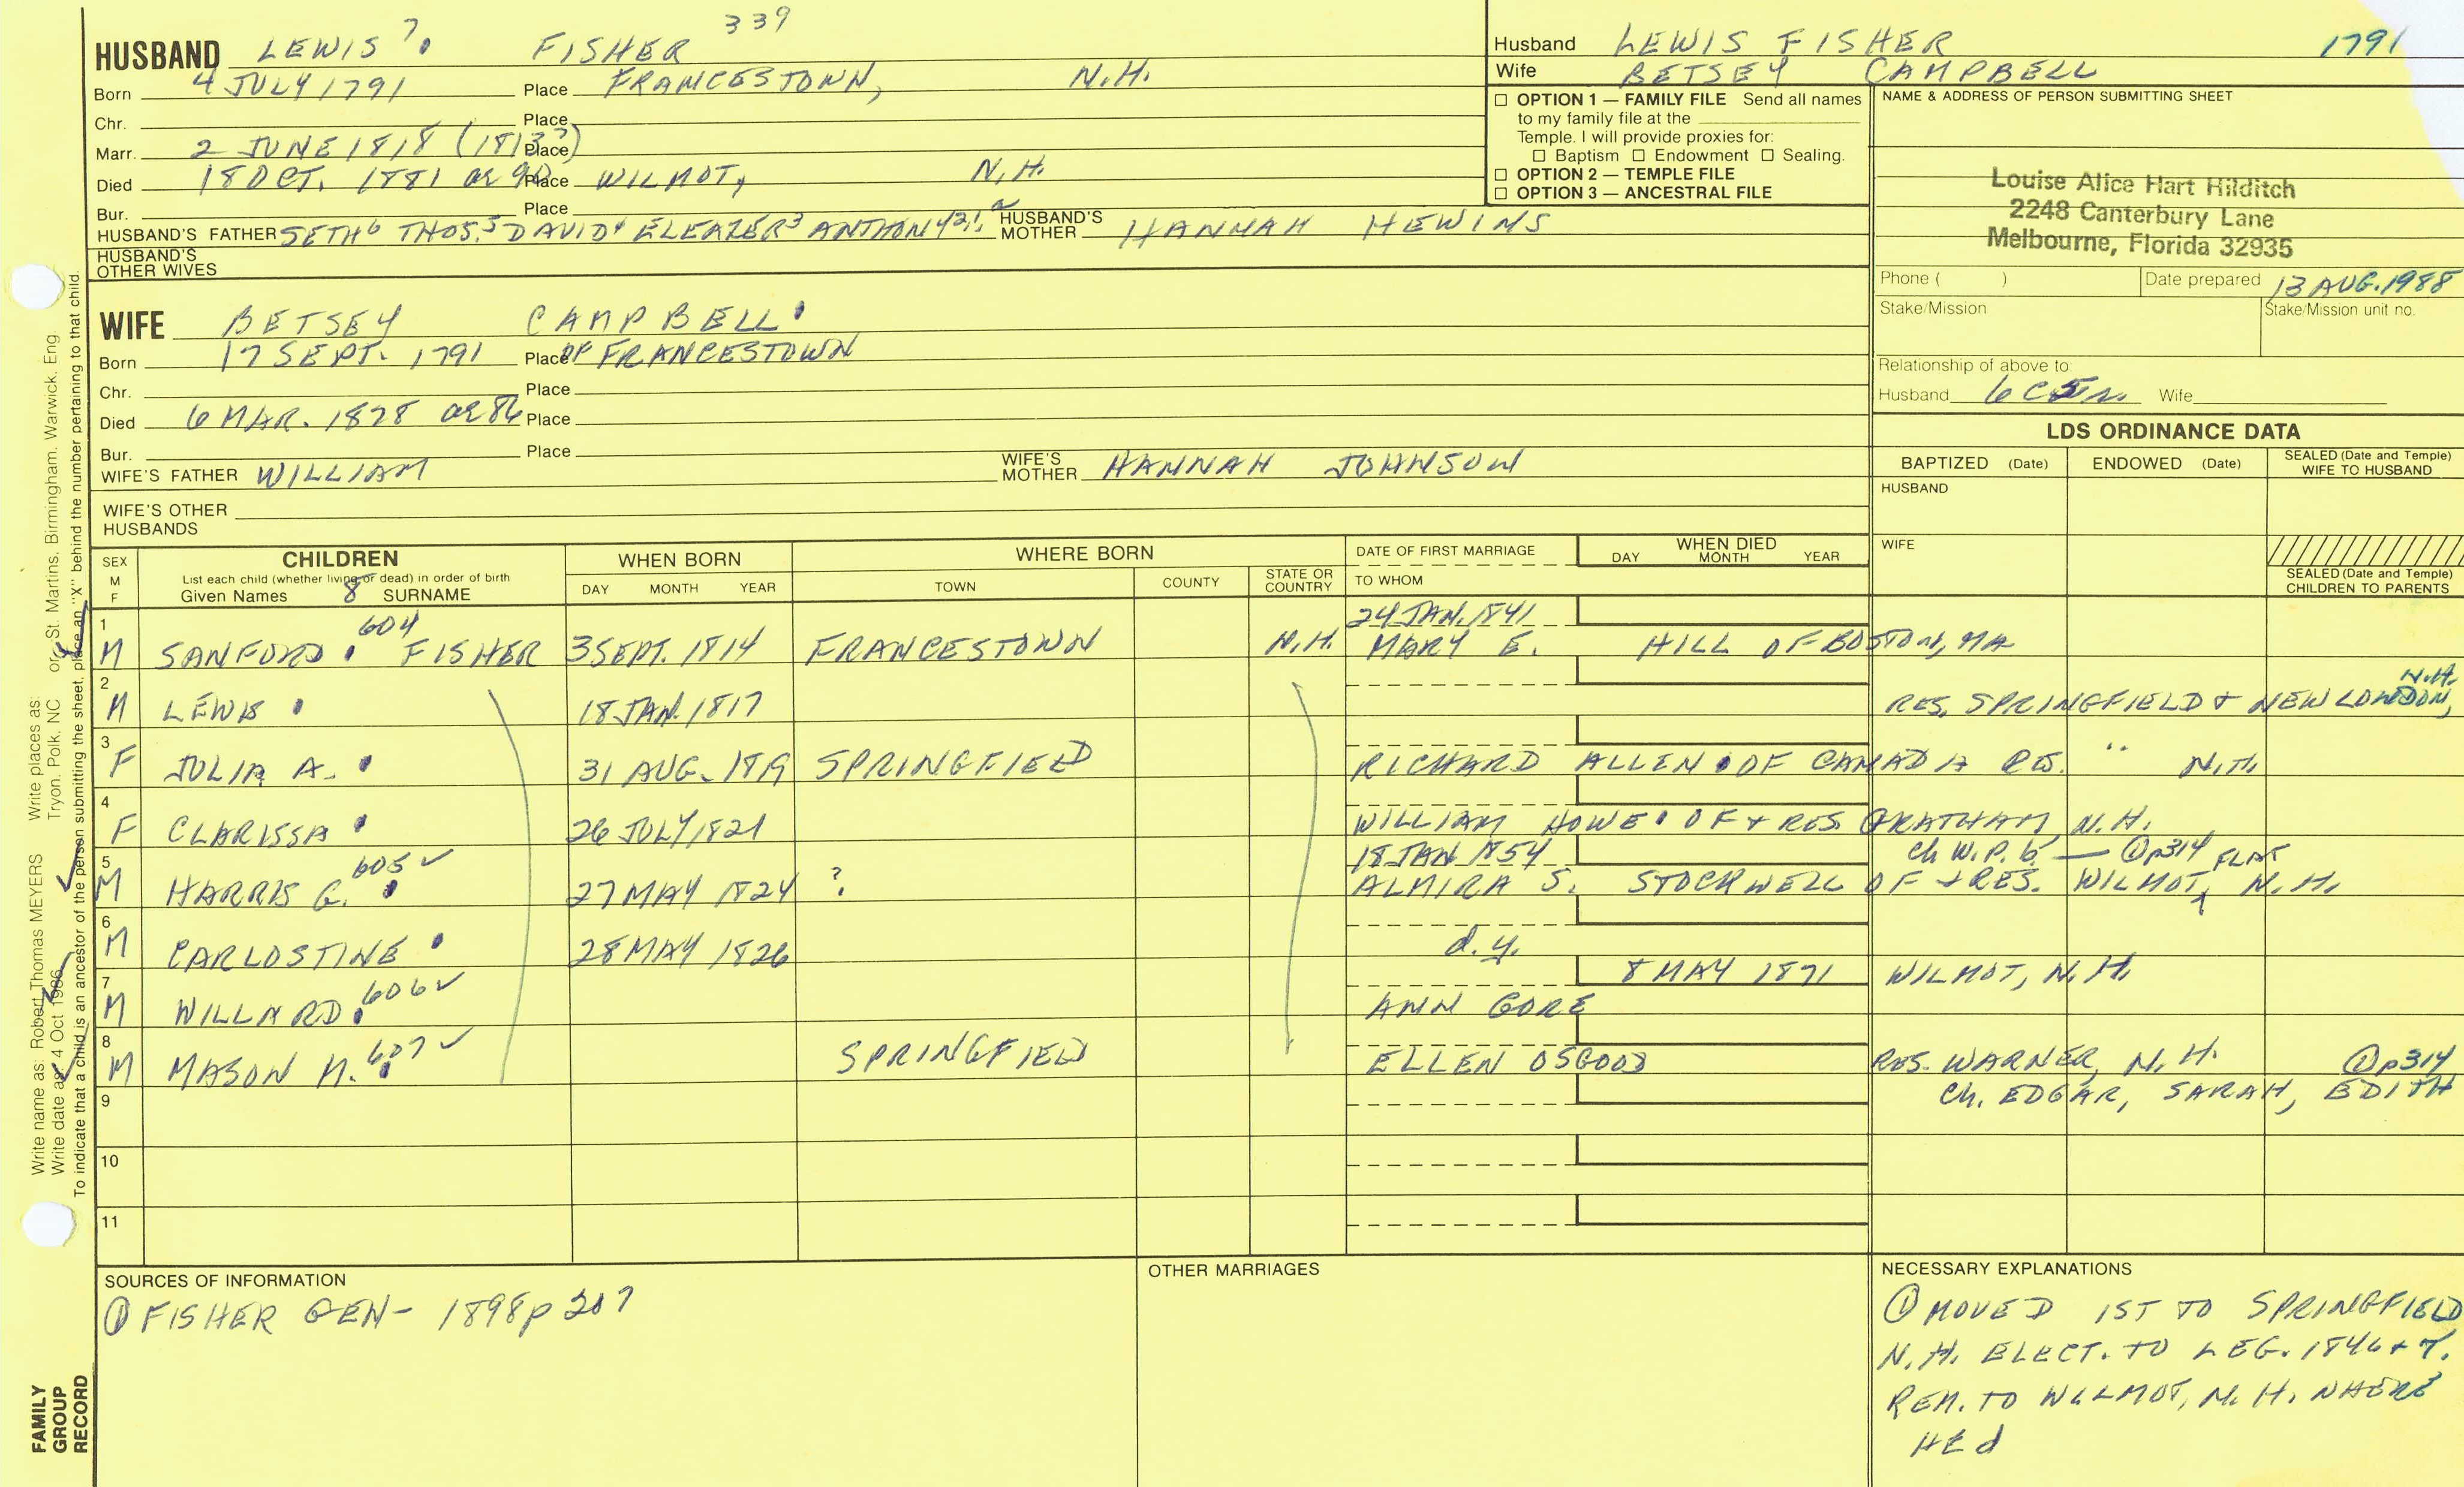 HUSBAND LEWIS 7. FISHER 339
Born 4 JULY 1791 Place FRANCESTOWN, N.H.
Chr. Place
Marr. 2 JUNE 1818 (1813?) Place
Died 18 OCT. 1881 ae 90 Place WILMOT, N.H.
Bur. Place
HUSBAND'S FATHER SETH6 THOS.5 DAVID4 ELEAZER3 ANTHONY2,1, HUSBAND'S MOTHER HANNAH HEWINS
HUSBAND'S OTHER WIVES
WIFE BETSEY CAMPBELL
Born 17 SEPT. 1791 Place OF FRANCESTOWN
Chr. Place
Died 6 MAR. 1878 ae 86 Place
Bur. Place
WIFE'S FATHER WILLIAM WIFE'S MOTHER HANNAH JOHNSON
WIFE'S OTHER HUSBANDS
Husband LEWIS FISHER 1791
Wife BETSEY CAMPBELL
☐ OPTION 1 — FAMILY FILE Send all names
to my family file at the
Temple. I will provide proxies for:
☐ Baptism ☐ Endowment ☐ Sealing.
☐ OPTION 2 — TEMPLE FILE
☐ OPTION 3 — ANCESTRAL FILE
NAME & ADDRESS OF PERSON SUBMITTING SHEET
Louise Alice Hart Hilditch
2248 Canterbury Lane
Melbourne, Florida 32935
Phone ( ) Date prepared 13 AUG. 1988
Stake/Mission Stake/Mission unit no.
Relationship of above to:
Husband 6C5R. Wife
LDS ORDINANCE DATA
BAPTIZED (Date) ENDOWED (Date) SEALED (Date and Temple) WIFE TO HUSBAND
HUSBAND
WIFE
SEALED (Date and Temple)
CHILDREN TO PARENTS
SEX M F
CHILDREN
List each child (whether living or dead) in order of birth
Given Names 8 SURNAME
WHEN BORN DAY MONTH YEAR
WHERE BORN TOWN COUNTY STATE OR COUNTRY
DATE OF FIRST MARRIAGE TO WHOM
WHEN DIED DAY MONTH YEAR
1 604 24 JAN. 1841
M SANFORD FISHER 3 SEPT. 1814 FRANCESTOWN N.H. MARY E. HILL OF BOSTON, MA
2 N.H.
M LEWIS 18 JAN. 1817 RES. SPRINGFIELD + NEW LONDON,
3
F JULIA A. 31 AUG. 1819 SPRINGFIELD RICHARD ALLEN OF CANADA RES. " N.H.
4
F CLARISSA 26 JULY 1821 WILLIAM HOWE OF + RES. GRATHAM, N.H.
5 605 ✓ 18 JAN 1854 Ch W.P.b. — ①p314 FLAT
M HARRIS G. 27 MAY 1824 ? ALMIRA S. STOCKWELL OF + RES. WILMOT, N.H.
6
M CARLOSTINE 28 MAY 1826 d.y.
7 606 ✓ 8 MAY 1871 WILMOT, N.H.
M WILLARD ANN GORE
8 607 ✓
M MASON M. SPRINGFIELD ELLEN OSGOOD RES. WARNER, N.H. ①p314
9 Ch. EDGAR, SARAH, EDITH
10
11
SOURCES OF INFORMATION
① FISHER GEN- 1898 p 207
OTHER MARRIAGES
NECESSARY EXPLANATIONS
① MOVED 1ST TO SPRINGFIELD
N.H. ELECT. TO LEG. 1846 + 7.
REM. TO WILMOT, N.H. WHERE
HE d
Write name as: Robert Thomas MEYERS Write places as:
Write date as: 4 Oct 1986 Tryon. Polk. NC or St. Martins. Birmingham. Warwick. Eng
To indicate that a child is an ancestor of the person submitting the sheet, place an "X" behind the number pertaining to that child.
FAMILY
GROUP
RECORD